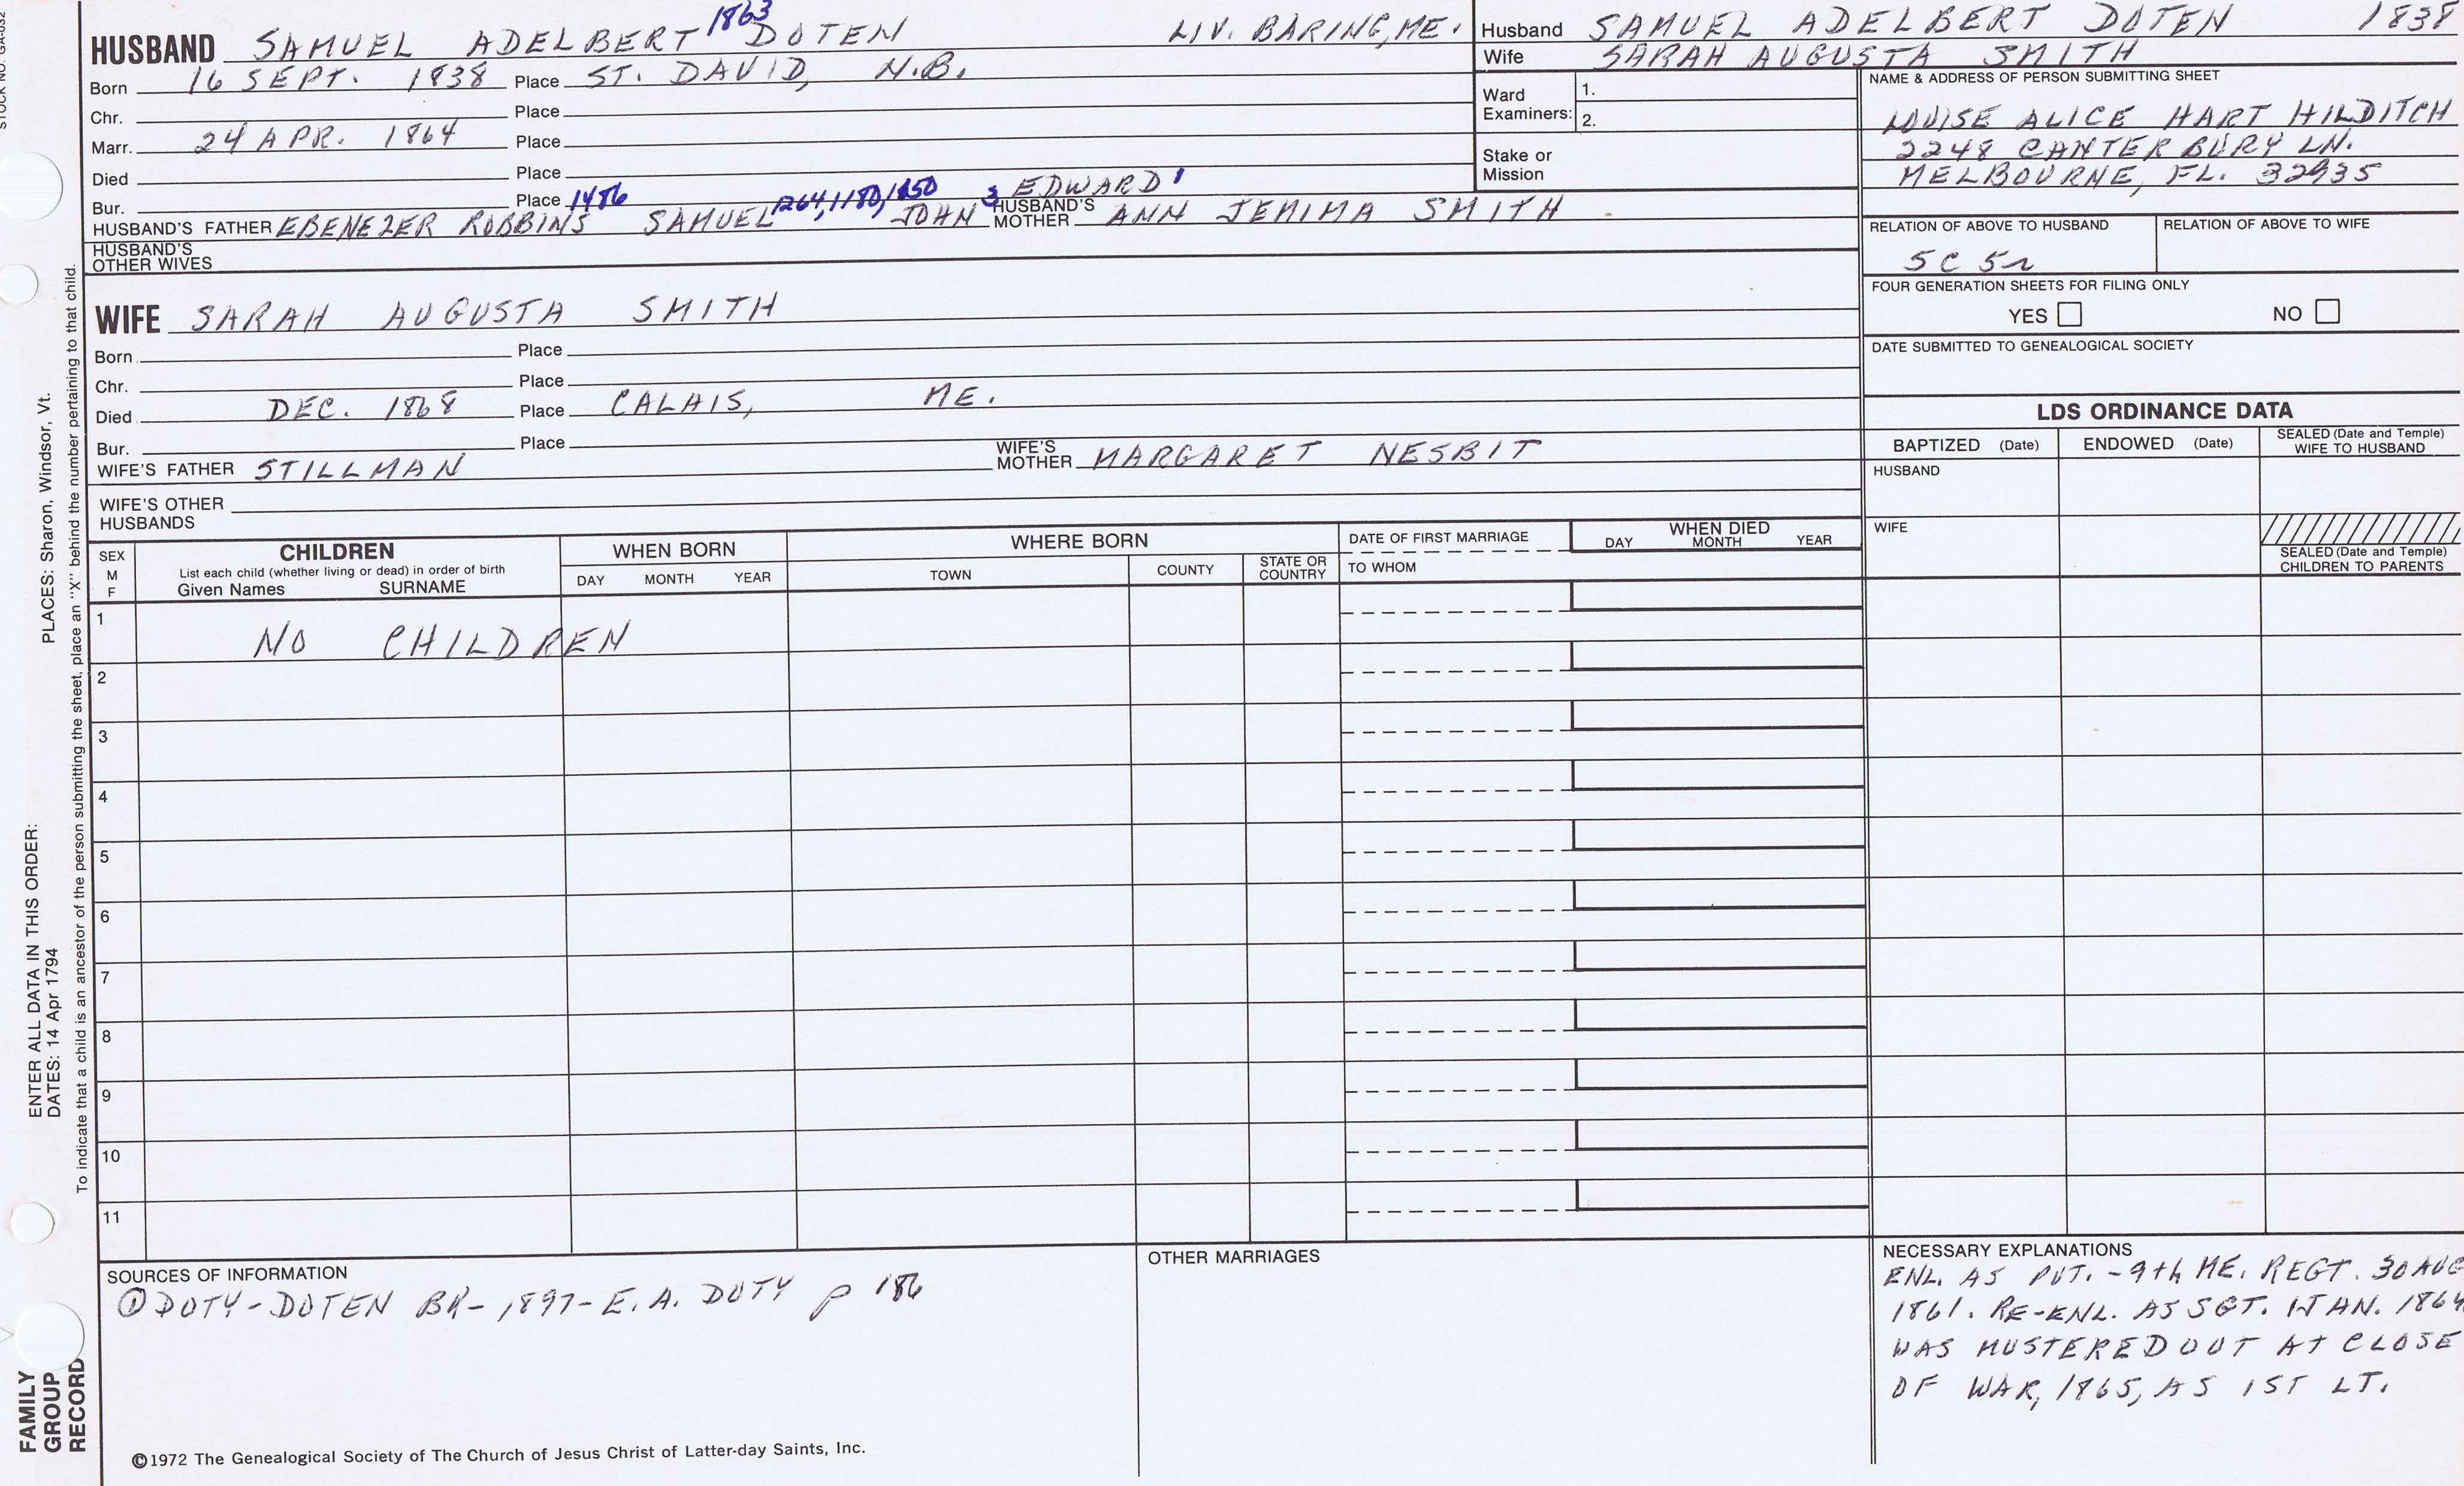 STOCK NO. GA-032
1863
HUSBAND SAMUEL ADELBERT DOTEN LIV. BARING, ME.
Born 16 SEPT. 1838 Place ST. DAVID, N.B.
Chr. Place
Marr. 24 APR. 1864 Place
Died Place
Bur. Place 1486 1264, 1180, 1850 3 EDWARD 1
HUSBAND'S FATHER EBENEZER ROBBINS SAMUEL JOHN HUSBAND'S MOTHER ANN JEMIMA SMITH
HUSBAND'S OTHER WIVES
WIFE SARAH AUGUSTA SMITH
Born Place
Chr. Place
Died DEC. 1868 Place CALAIS, ME.
Bur. Place
WIFE'S FATHER STILLMAN WIFE'S MOTHER MARGARET NESBIT
WIFE'S OTHER HUSBANDS
Husband SAMUEL ADELBERT DOTEN 1838
Wife SARAH AUGUSTA SMITH
Ward Examiners: 1.
2.
Stake or Mission
NAME & ADDRESS OF PERSON SUBMITTING SHEET
LOUISE ALICE HART HILDITCH
2248 CANTERBURY LN.
MELBOURNE, FL. 32935
RELATION OF ABOVE TO HUSBAND RELATION OF ABOVE TO WIFE
5C 5r
FOUR GENERATION SHEETS FOR FILING ONLY
YES NO
DATE SUBMITTED TO GENEALOGICAL SOCIETY
LDS ORDINANCE DATA
BAPTIZED (Date) ENDOWED (Date) SEALED (Date and Temple) WIFE TO HUSBAND
HUSBAND
WIFE
SEALED (Date and Temple) CHILDREN TO PARENTS
SEX M F CHILDREN WHEN BORN WHERE BORN DATE OF FIRST MARRIAGE WHEN DIED
List each child (whether living or dead) in order of birth
Given Names SURNAME DAY MONTH YEAR TOWN COUNTY STATE OR COUNTRY TO WHOM DAY MONTH YEAR
1 NO CHILDREN
2
3
4
5
6
7
8
9
10
11
SOURCES OF INFORMATION
① DOTY-DOTEN BK- 1897- E.A. DUTY p 186
OTHER MARRIAGES
NECESSARY EXPLANATIONS
ENL. AS PVT. - 9th ME. REGT. 30 AUG
1861. RE-ENL. AS SGT. 1 JAN. 1864
WAS MUSTERED OUT AT CLOSE
OF WAR, 1865, AS 1ST LT.
©1972 The Genealogical Society of The Church of Jesus Christ of Latter-day Saints, Inc.
FAMILY GROUP RECORD
ENTER ALL DATA IN THIS ORDER:
DATES: 14 Apr 1794 PLACES: Sharon, Windsor, Vt.
To indicate that a child is an ancestor of the person submitting the sheet, place an "X" behind the number pertaining to that child.